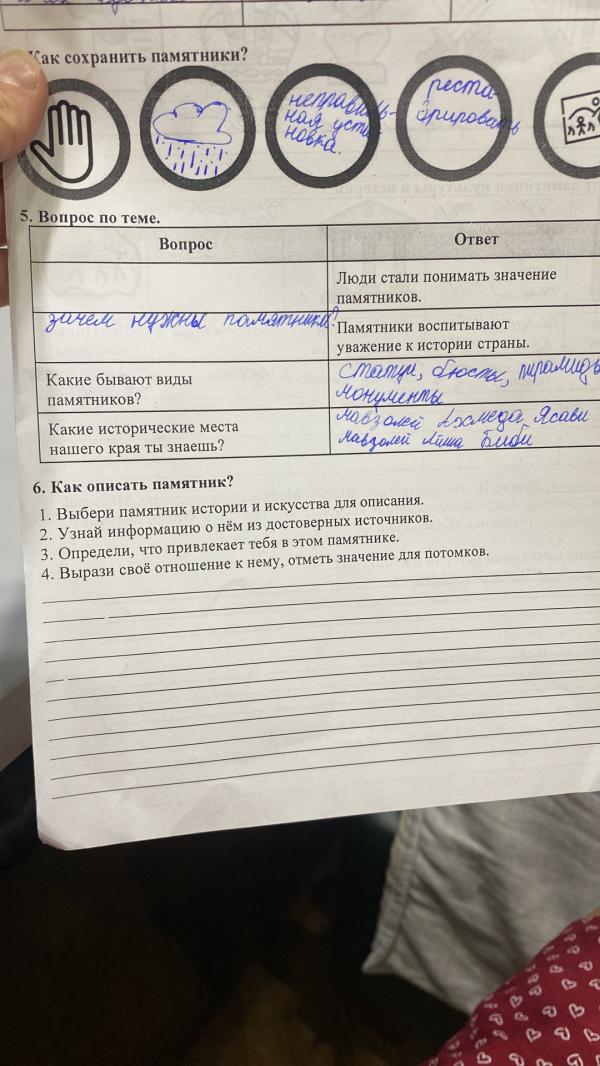 Как сохранить памятники?
неправиль-
ная уста
новка.
реста-
врировать
5. Вопрос по теме.
Вопрос
Ответ
Люди стали понимать значение
памятников.
зачем нужны памятники?
Памятники воспитывают
уважение к истории страны.
Какие бывают виды
памятников?
статуи, бюсты, пирамиды
монументы
Какие исторические места
нашего края ты знаешь?
мавзолей Ахмеда Ясави
мавзолей Айша Биби
6. Как описать памятник?
1. Выбери памятник истории и искусства для описания.
2. Узнай информацию о нём из достоверных источников.
3. Определи, что привлекает тебя в этом памятнике.
4. Вырази своё отношение к нему, отметь значение для потомков.